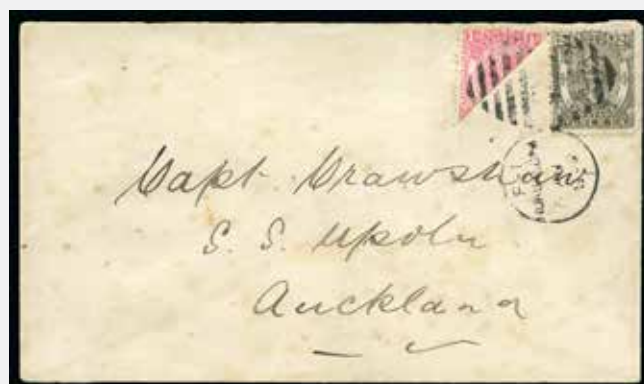 Capt. Crawshaw
S. S. Upolu
Auckland